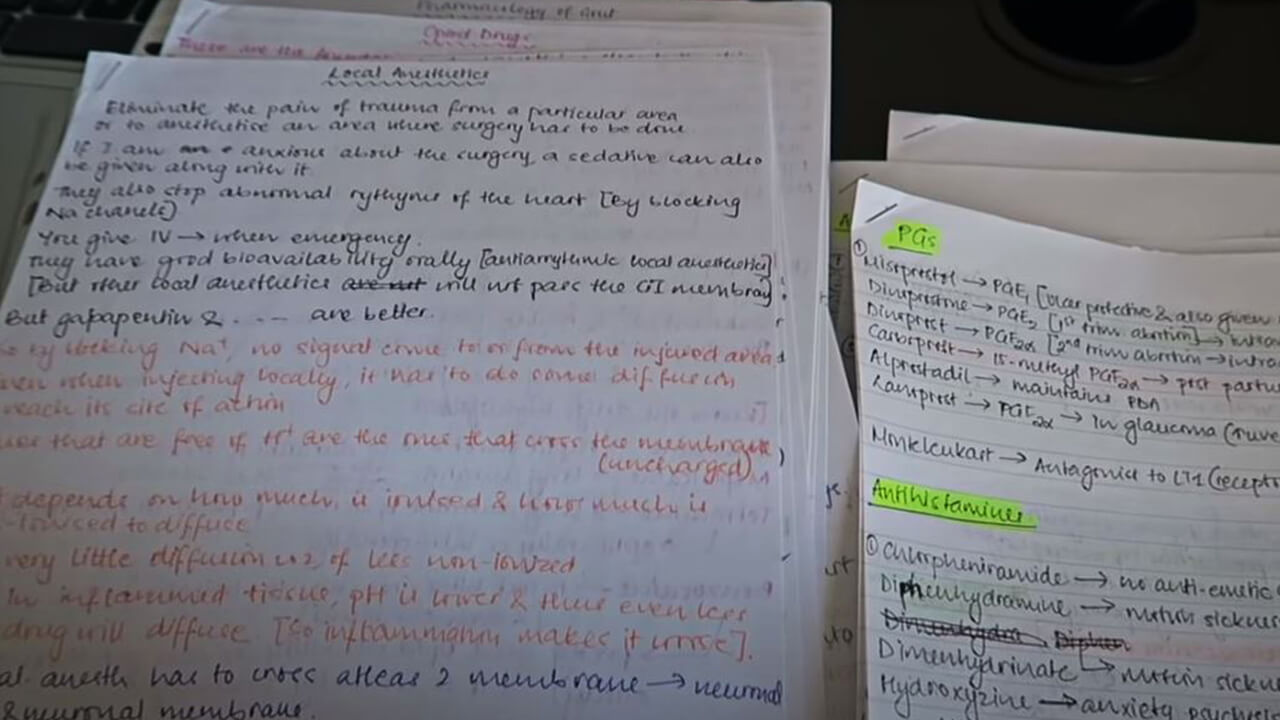 Pharmacology of Gut
Opioid Drugs
These are the
Local Anesthetics
Eliminate the pain of trauma from a particular area
or to anesthetise an area where surgery has to be done
If I am anxious about the surgery, a sedative can also
be given along with it.
They also stop abnormal rythyms of the heart [By blocking
Na chanels]
You give IV → when emergency.
They have good bioavailability orally [antiarrytmic local anesthetic]
[But other local anesthetics are not will not pass the GI membray]
But gapapentin & .... are better.
by blocking Na⁺, no signal come to or from the injured area
when injecting locally, it has to do some diffusion
reach its site of action
that are free of H⁺ are the ones that cross the membrane
(uncharged)
depends on how much is ionised & how much is
-ionised to diffuse
very little diffusion coz of less non-ionized
In inflammed tissue, pH is lower & thus even less
drug will diffuse. [So inflammation makes it worse].
al anesth has to cross atleas 2 membrane → neuronal
& neuronal membrane.
PGs
① Misoprostol → PGE₁ [ulcer protective & also given
Dinoprostone → PGE₂ [1st trim abortion] →
Dinoprost → PGF₂α [2nd trim abortion → intra
Carboprost → 15-methyl PGF₂α → post partu
Alprostadil → maintains PDA
Lanoprost → PGF₂α → In glaucoma
Monkelukast → Antagonist to LT1 (recept
Antihistamines
① Chlorpheniramide → no anti-emetic
Diphenhydramine → motion sicknes
Dimenhydra Diphen
Dimenhydrinate → motion sickne
Hydroxyzine → anxiety